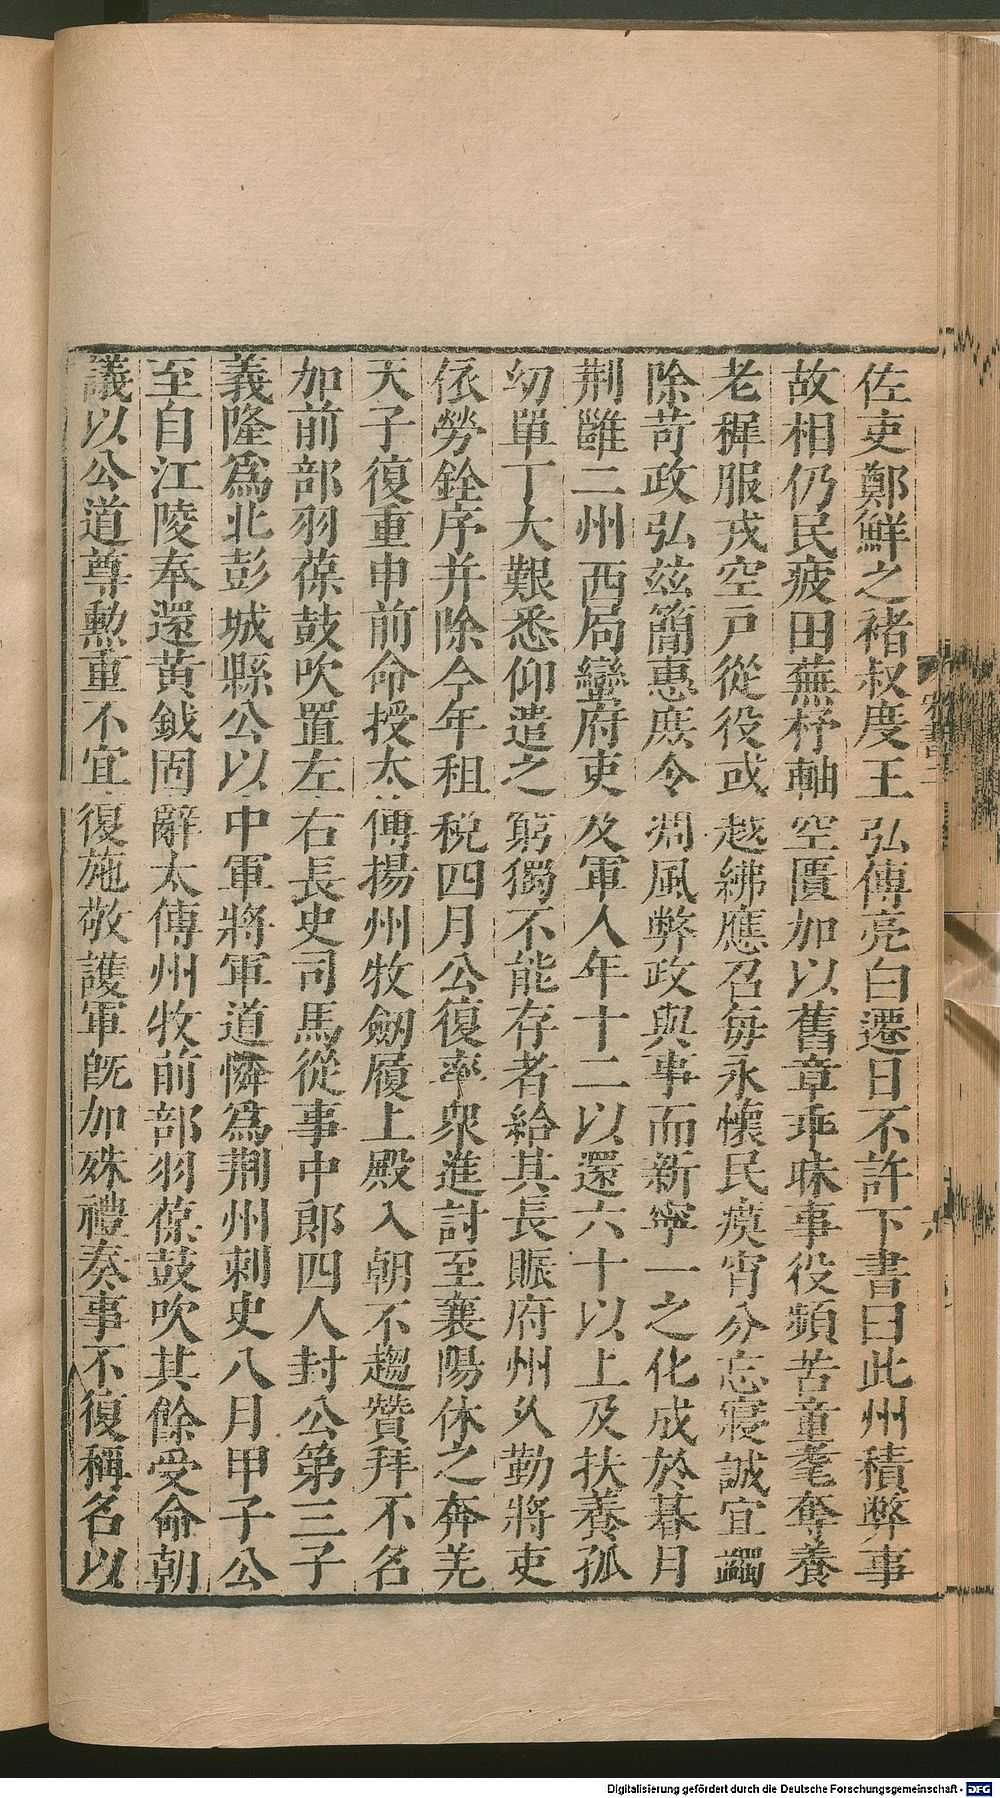 佐吏鄭鮮之褚叔度王弘傅亮白遷日不許下書曰此州積弊事
故相仍民疲田蕪杼軸空匱加以舊章乖昧事役頻苦童耄奪養
老穉服戎空戶從役或越紼應召每永懷民瘼宵分忘寢誠宜蠲
除苛政弘兹簡惠庶令凋風弊政與事而新寧一之化成於朞月
荆雝二州西局蠻府吏及軍人年十二以還六十以上及扶養孤
幼單丁大艱悉仰遣之窮獨不能存者給其長賑府州久勤將吏
依勞銓序并除今年租稅四月公復率衆進討至襄陽休之奔羌
天子復重申前命授太傅揚州牧劔履上殿入朝不趨贊拜不名
加前部羽葆鼓吹置左右長史司馬從事中郎四人封公第三子
義隆爲北彭城縣公以中軍將軍道憐爲荆州刺史八月甲子公
至自江陵奉還黃鉞固辭太傅州牧前部羽葆鼓吹其餘受命朝
議以公道尊勲重不宜復施敬護軍旣加殊禮奏事不復稱名以
宋書二
Digitalisierung gefördert durch die Deutsche Forschungsgemeinschaft - DFG